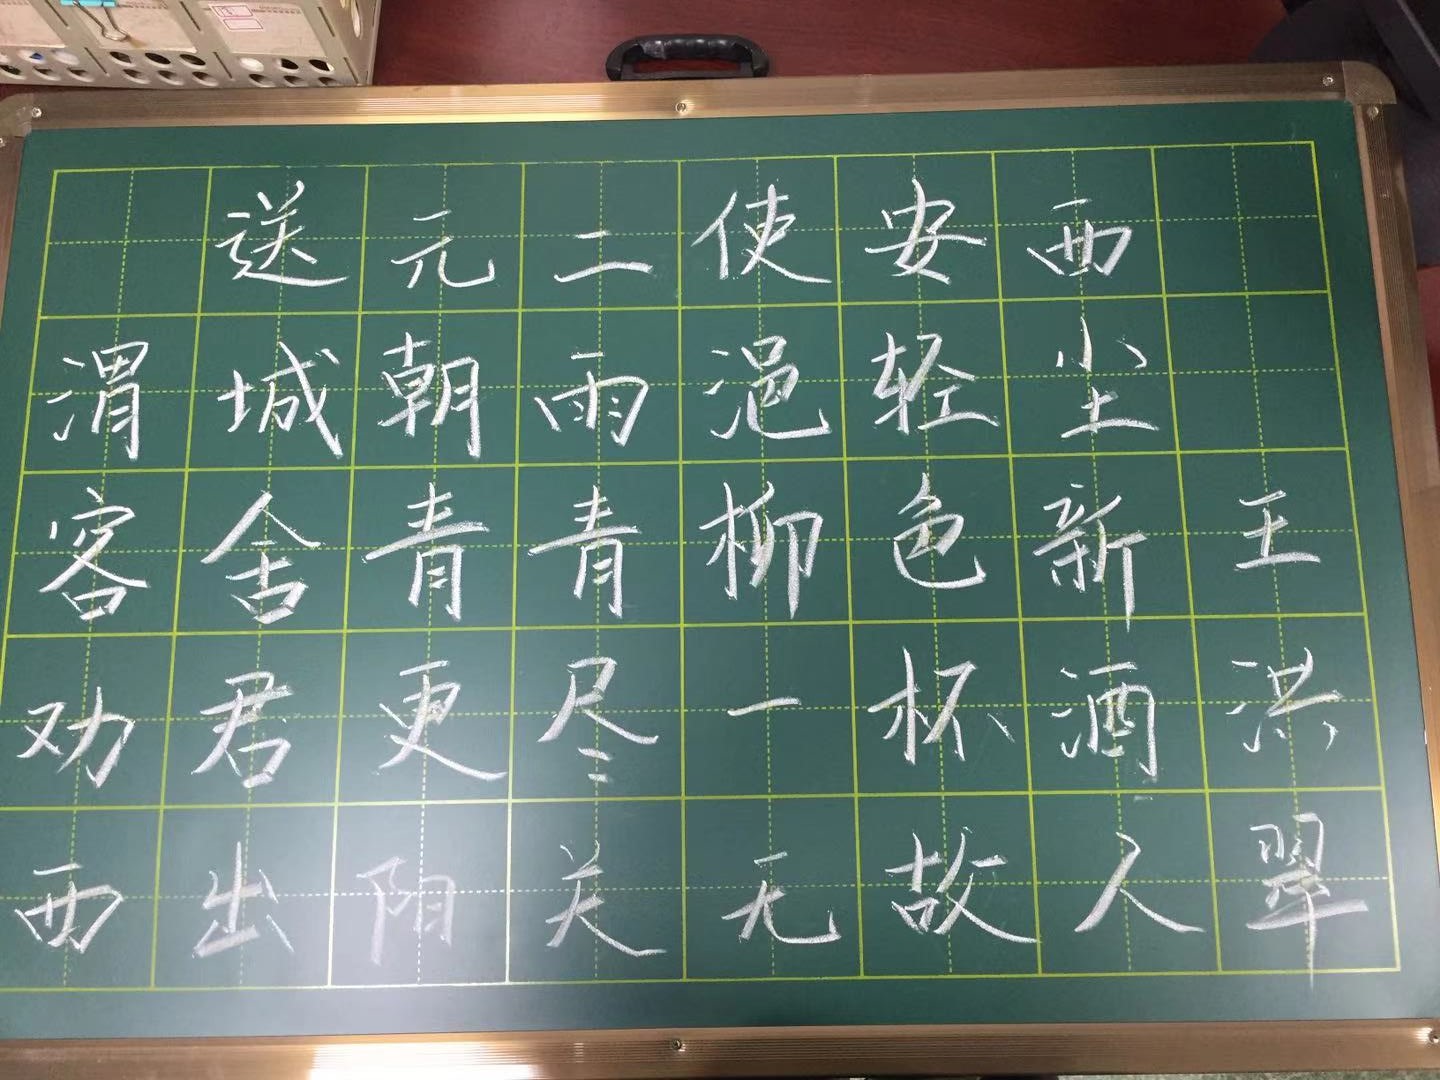 送元二使安西
渭城朝雨浥轻尘
客舍青青柳色新 王
劝君更尽一杯酒 洪
西出阳关无故人 翠